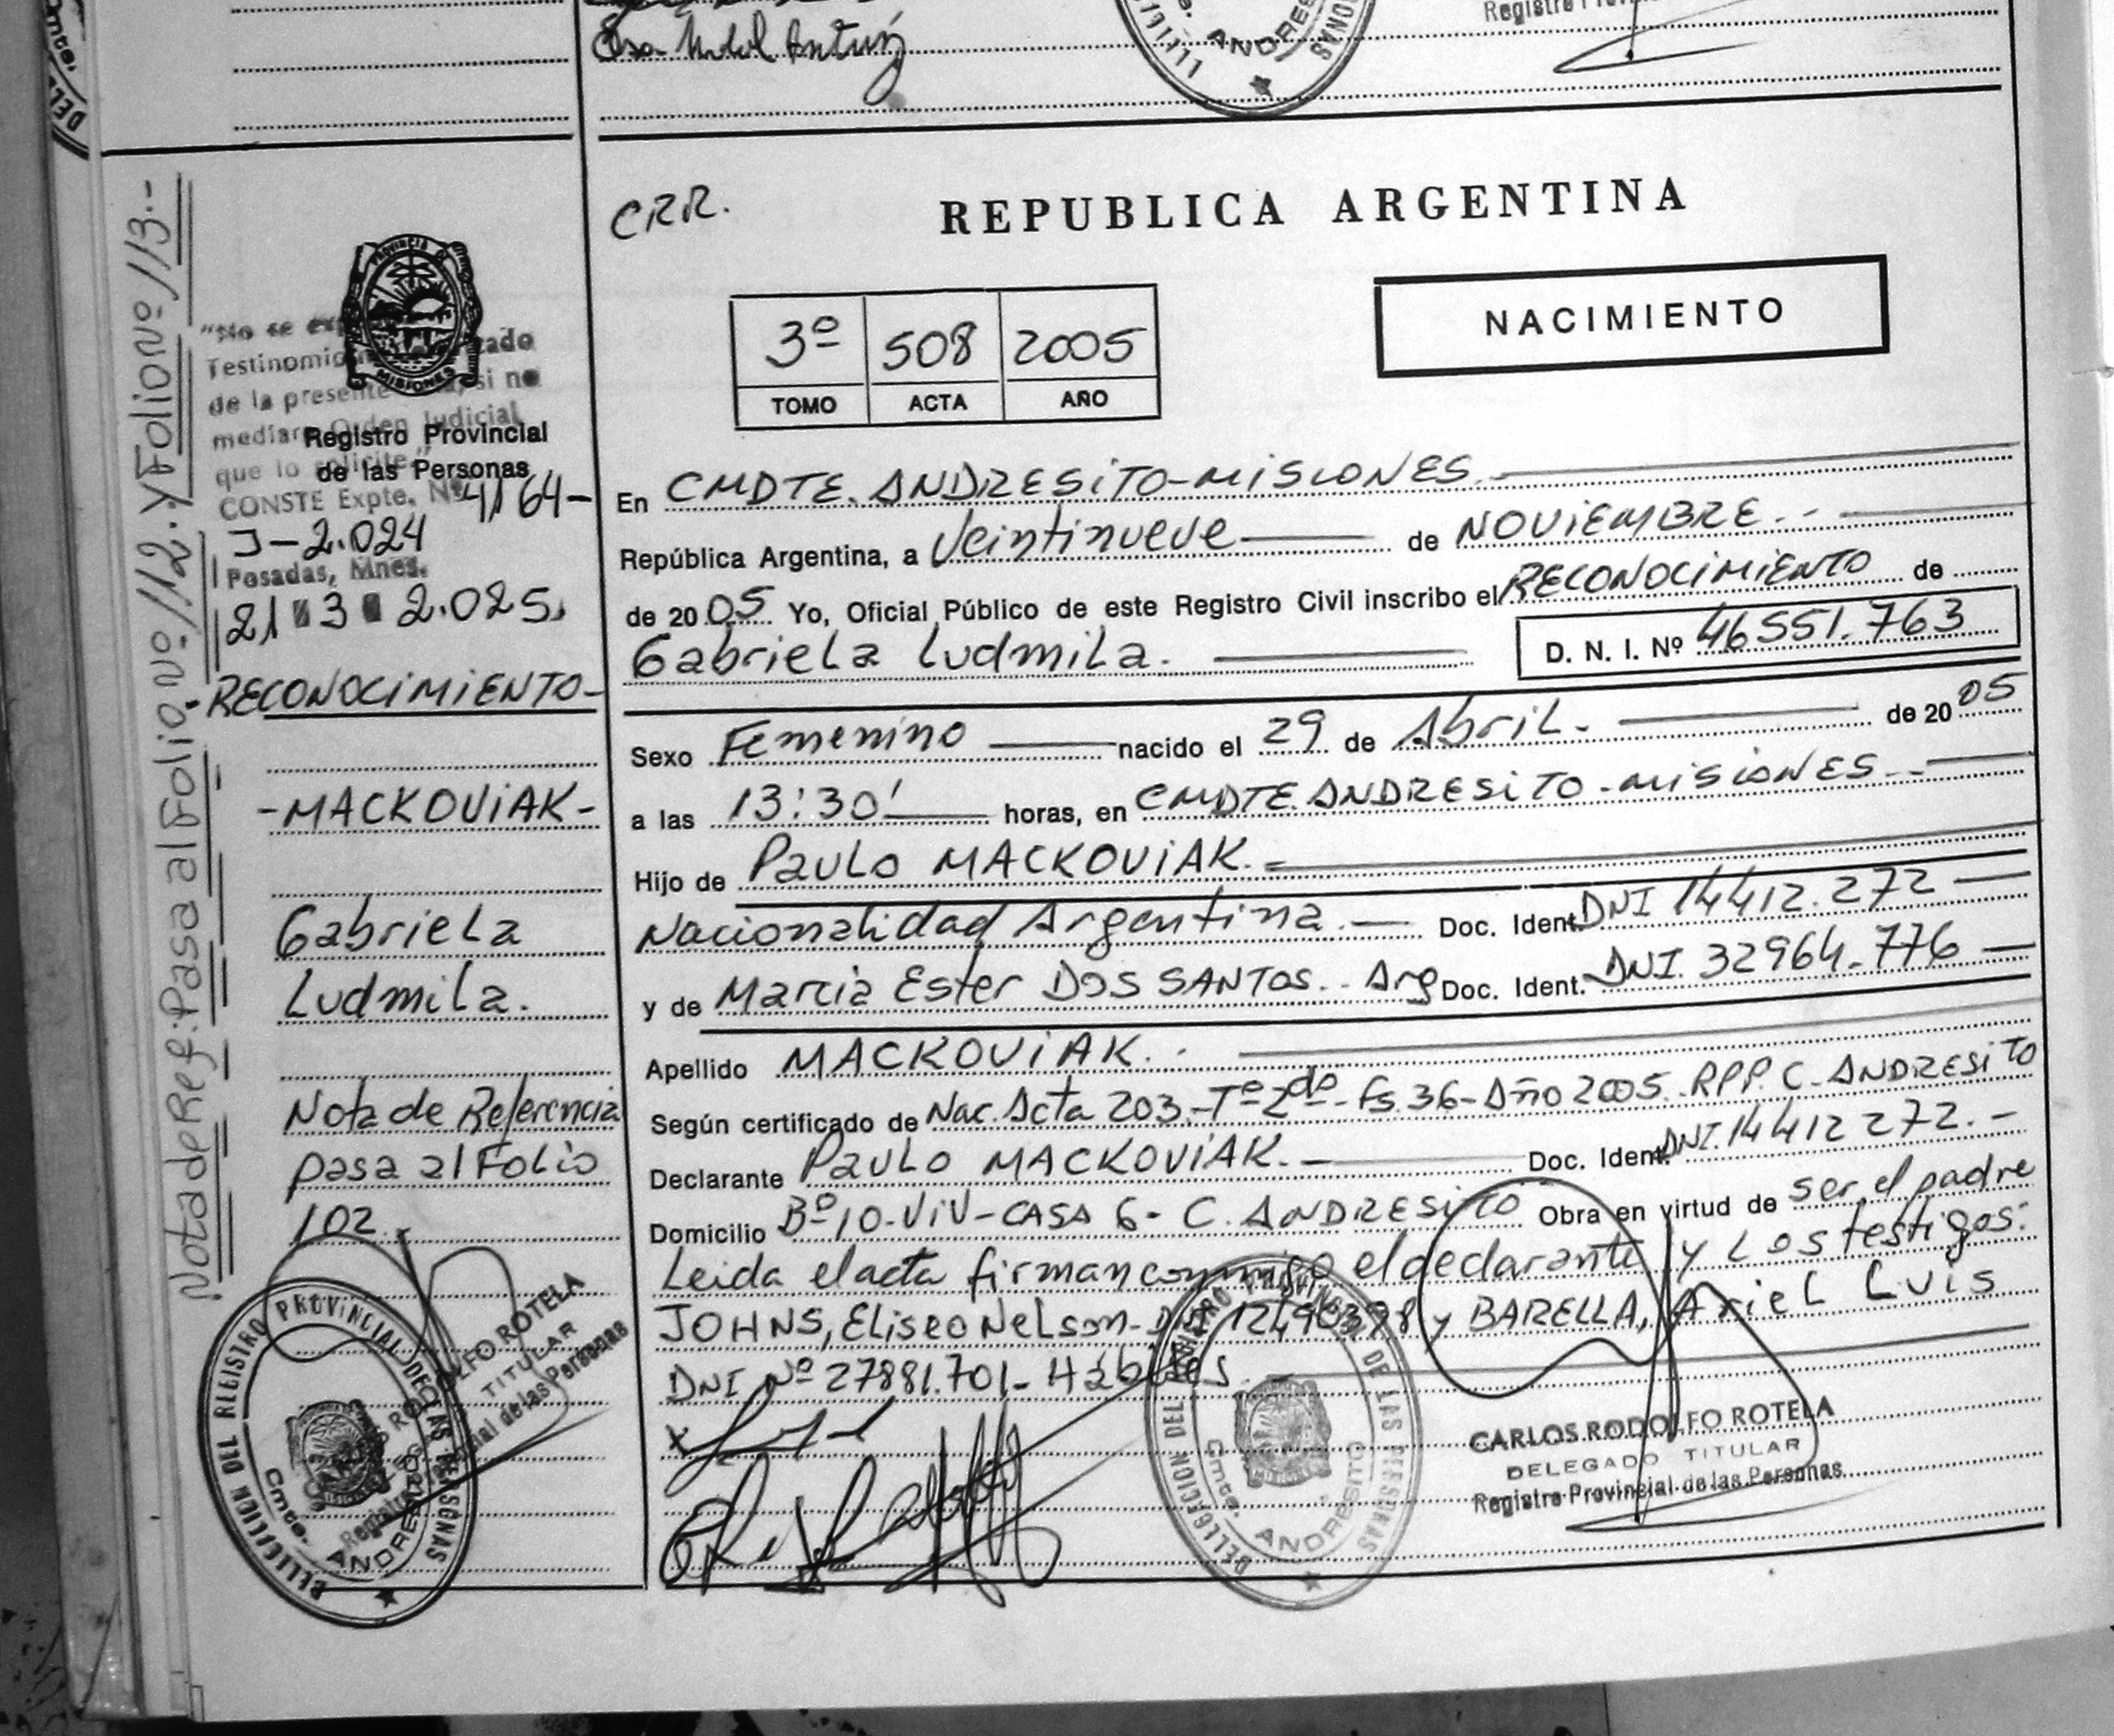 Registro
ANDRES
CRR.
REPUBLICA ARGENTINA
NACIMIENTO
3º 508 2005
TOMO ACTA AÑO
En CMDTE. ANDRESITO-MISIONES.
República Argentina, a Veintinueve de NOVIEMBRE.-
de 2005 Yo, Oficial Público de este Registro Civil inscribo el RECONOCIMIENTO de
Gabriela Ludmila.
D. N. I. Nº 46551.763
Sexo Femenino nacido el 29 de Abril. de 2005
a las 13:30' horas, en CMDTE. ANDRESITO-MISIONES.-
Hijo de Paulo MACKOVIAK.-
Nacionalidad Argentina.- Doc. Ident. DNI 14412.272
y de Marcia Ester DOS SANTOS.. Arg Doc. Ident. DNI. 32964.776
Apellido MACKOVIAK.
Según certificado de Nac. Acta 203.-Tº 2do-Fs. 36-Año 2005. RPP. C. ANDRESITO
Declarante Paulo MACKOVIAK.- Doc. Ident. DNI. 14412272.-
Domicilio Bº 10-VIV-CASA 6- C. ANDRESITO Obra en virtud de ser el padre
Leida el acta firman conmigo el declarante y Los testigos:
JOHNS, Eliseo Nelson- DNI 12490398 y BARELLA, Ariel Luis
DNI Nº 27881.701- Hábiles
CARLOS RODOLFO ROTELA
DELEGADO TITULAR
Registro Provincial de las Personas
DELEGECION DEL REGISTRO PROVINCIAL DE LAS PERSONAS
Cmte. ANDRESITO
PROVINCIA
MISIONES
"No se
Testimonio
de la presente si no
mediare Orden Judicial
que lo solicite."
Registro Provincial
de las Personas
CONSTE Expte. Nº 4164-
J-2.024
Posadas, Mnes.
21 3 2.025.
RECONOCIMIENTO-
-MACKOVIAK-
Gabriela
Ludmila.
Nota de Referencia
pasa al Folio
102.
DELEGECION DEL REGISTRO PROVINCIAL DE LAS PERSONAS
Cmte. ANDRESITO
ROTELA
TITULAR
de las Personas
Nota de Ref: Pasa al Folio. Nº 112. y Folio Nº 113.-